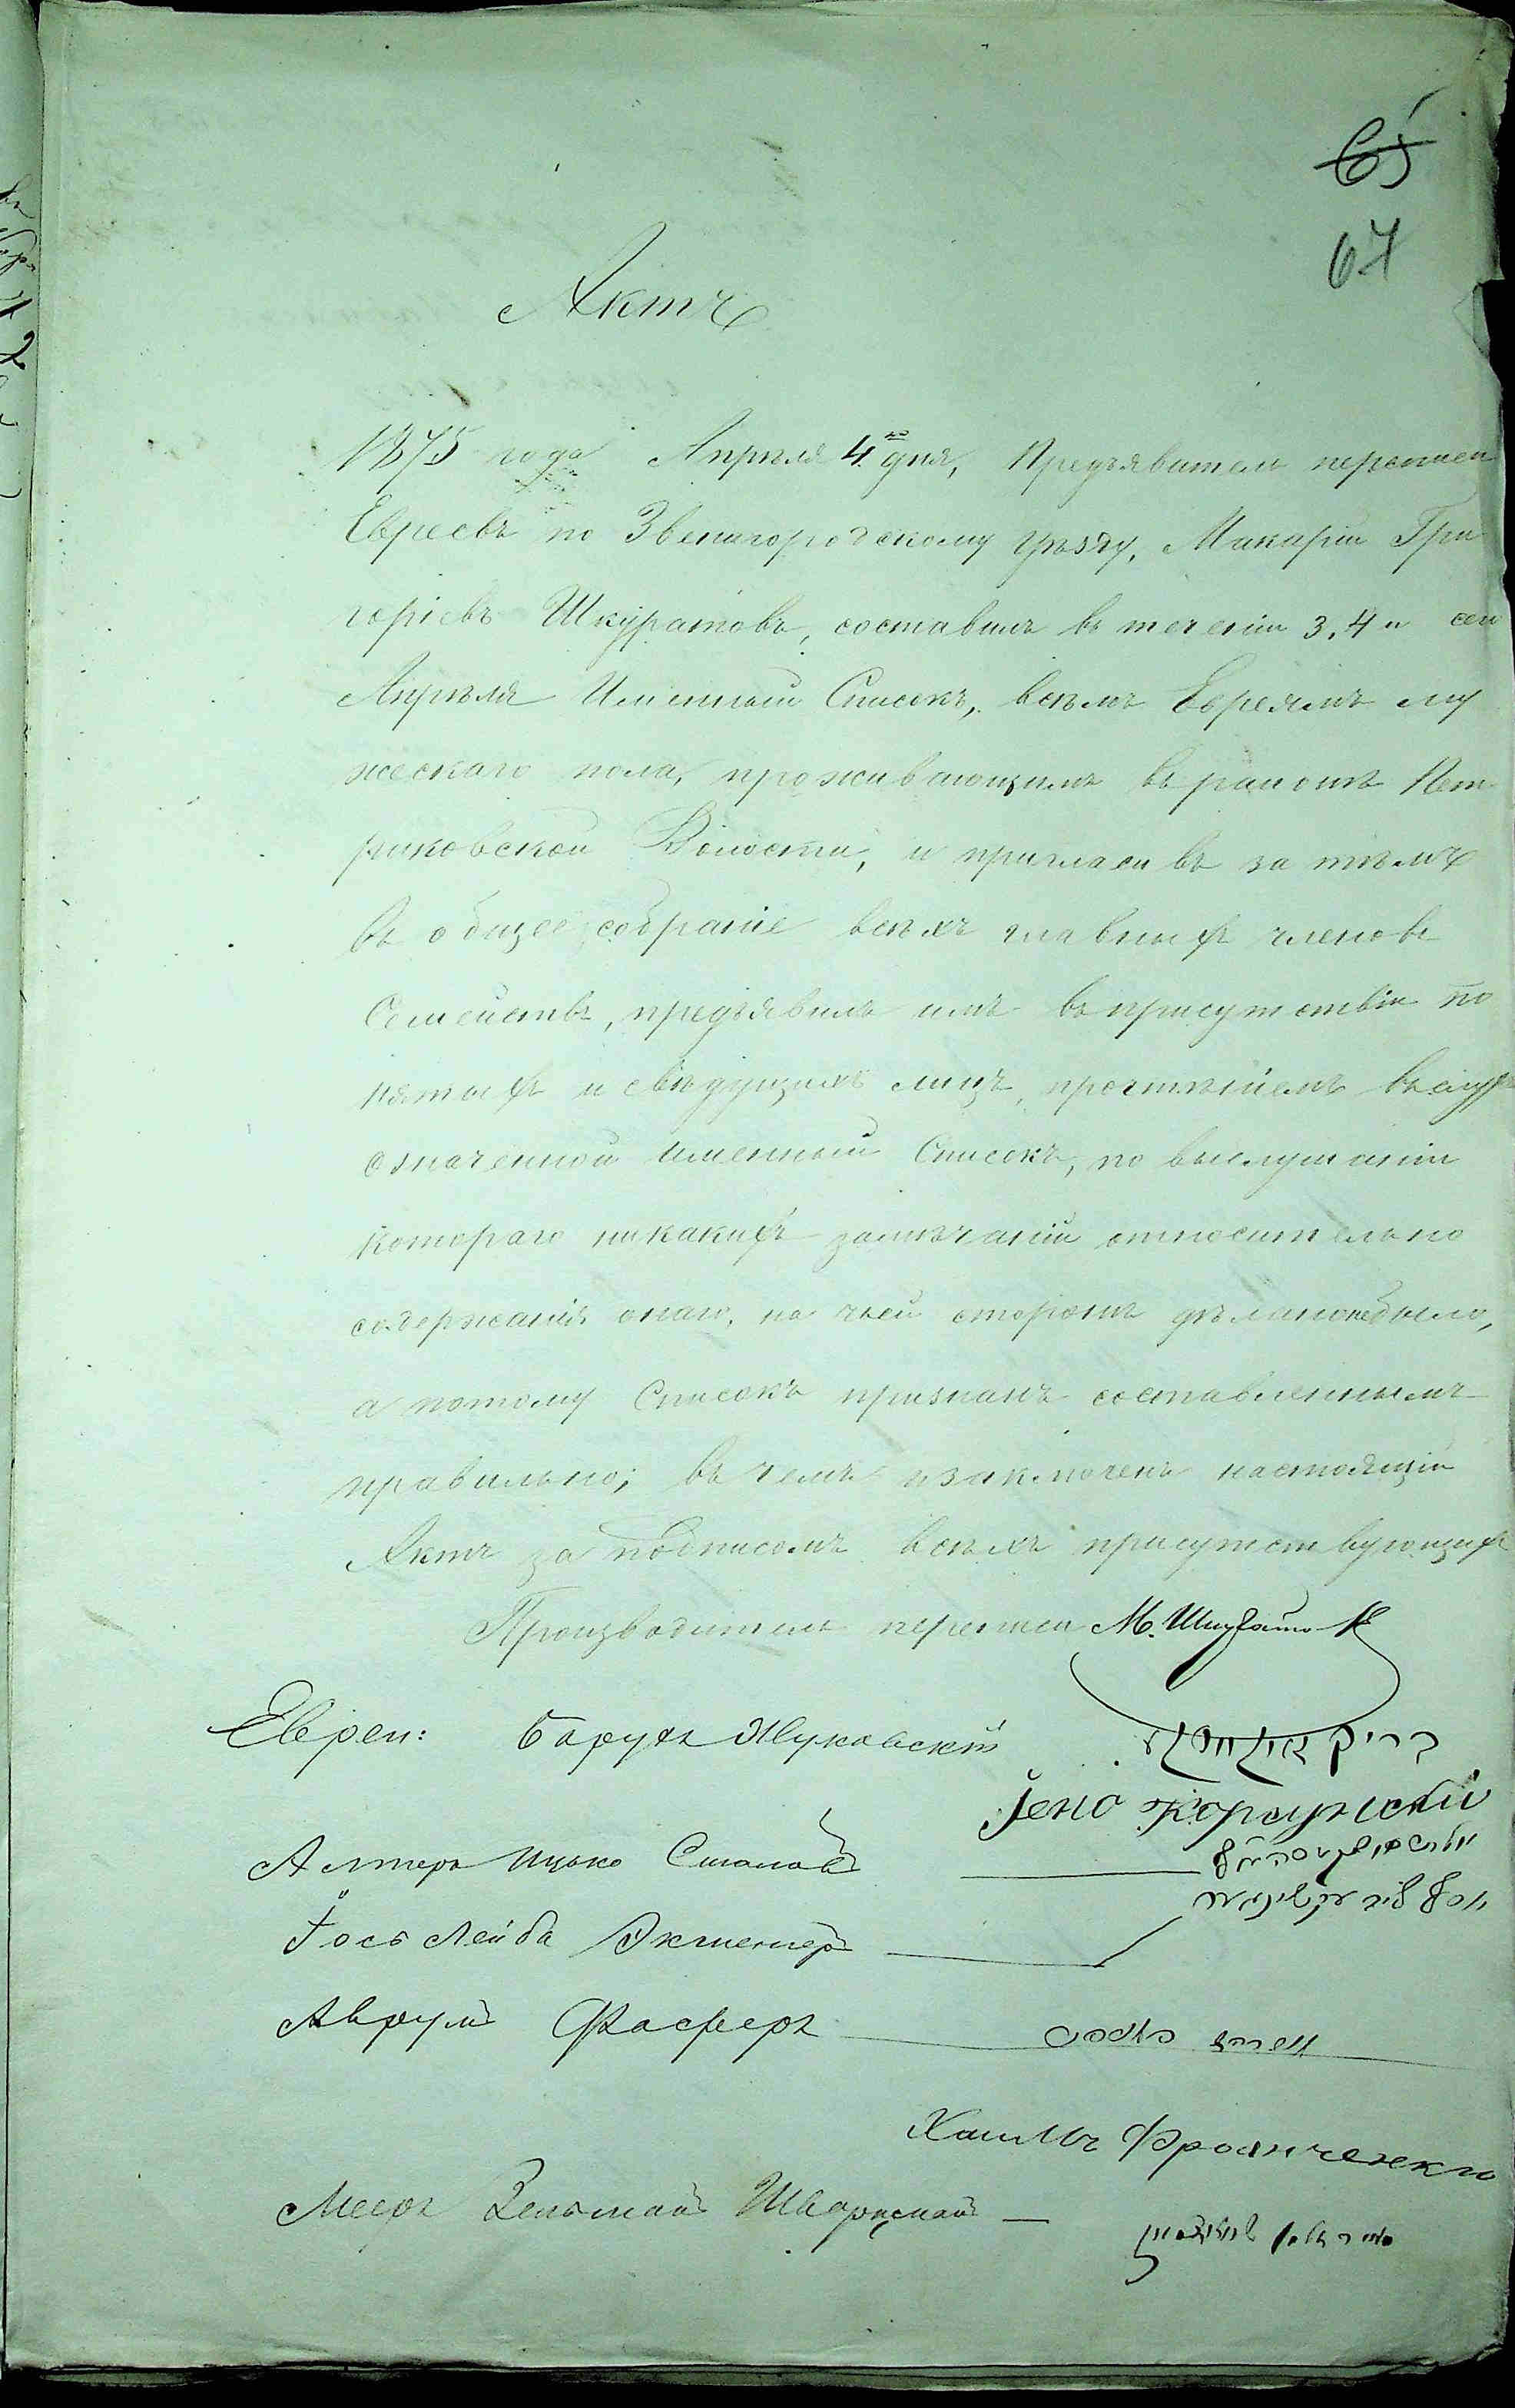 65
67
Актъ
1875 года Апрѣля 4го дня, Предъявитель переписи
Евреевъ по Звенигородскому уѣзду, Макарій Гри
горіевъ Шкуратовъ, составилъ въ теченіи 3, 4 и сего
Апрѣля Именный Списокъ, всѣмъ Евреямъ му
жескаго пола, проживающимъ въ раіонѣ Пет
риковской Волости, и пригласивъ за тѣмъ
въ общее собраніе всѣхъ главныхъ членовъ
Семействъ, предъявилъ имъ въ присутствіи по
нятыхъ и свѣдущихъ лицъ, прочтеніемъ въ слухъ
означенной Именный Списокъ, по выслушаніи
котораго никакихъ замѣчаній относительно
содержанія онаго, на чьей сторонѣ дѣлано небыло,
а потому Списокъ признанъ составленнымъ
правильно; въ чемъ и заключенъ настоящій
Актъ за подписомъ всѣхъ присутствующихъ
Производитель переписи М. Шкуратов
Евреи: Барухъ Жуковскій
Алтеръ Ицько
Іось Лейба
Аврумъ
Хаимъ
Мееръ Зельманъ Шварцманъ